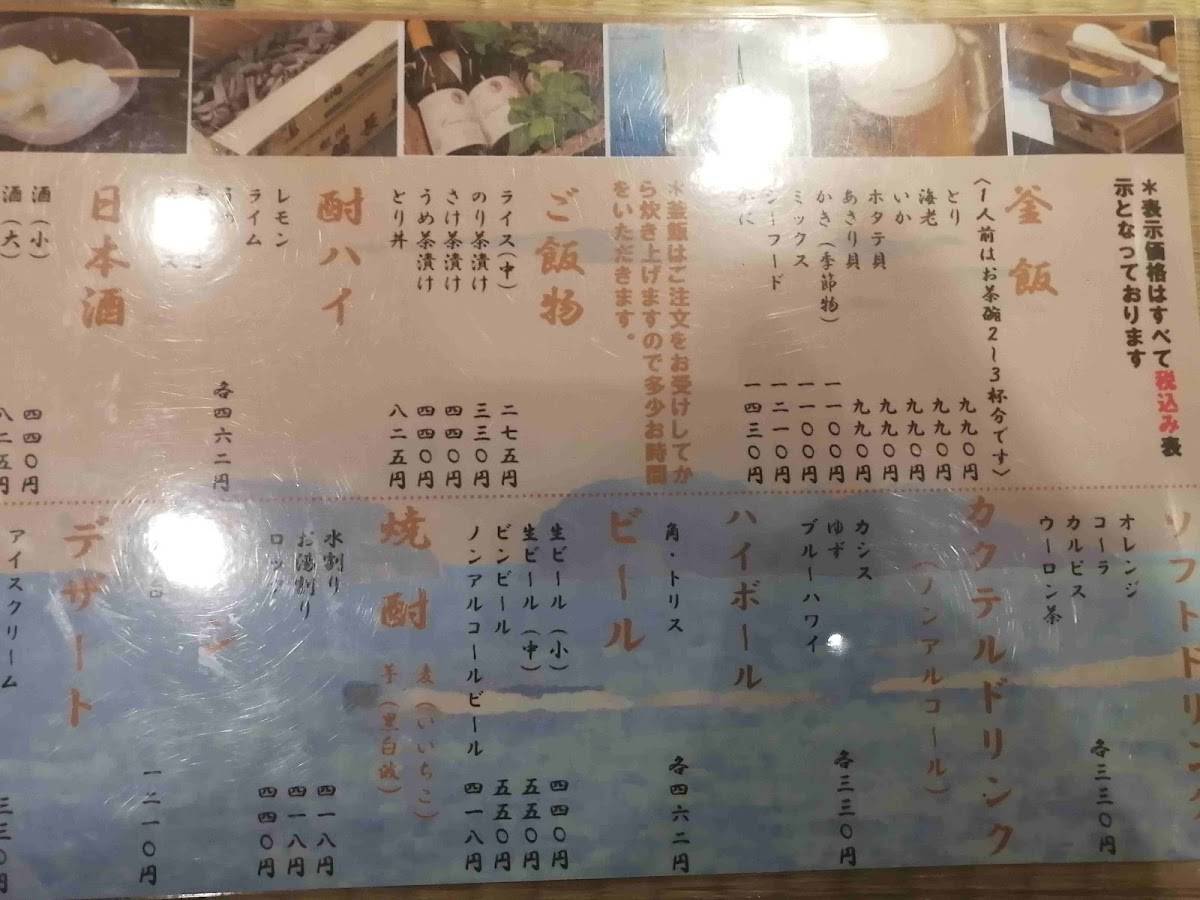 ＊表示価格はすべて税込み表
示となっております
釜飯
〈1人前はお茶碗2〜3杯分です〉
とり 九九〇円
海老 九九〇円
いか 九九〇円
ホタテ貝 九九〇円
あさり貝 九九〇円
かき（季節物） 一一〇〇円
ミックス 一一〇〇円
シーフード 一二一〇円
かに 一四三〇円
＊釜飯はご注文をお受けしてか
ら炊き上げますので多少お時間
をいただきます。
ご飯物
ライス（中） 二七五円
のり茶漬け 三三〇円
さけ茶漬け 四四〇円
うめ茶漬け 四四〇円
とり丼 八二五円
酎ハイ
レモン
ライム
各四六二円
日本酒
酒（小） 四四〇円
酒（大） 八二五円
ソフトドリンク
オレンジ
コーラ
カルピス
ウーロン茶
各三三〇円
カクテルドリンク
（ノンアルコール）
カシス
ゆず
ブルーハワイ
各三三〇円
ハイボール
角・トリス
各四六二円
ビール
生ビール（小） 四四〇円
生ビール（中） 五五〇円
ビンビール 五五〇円
ノンアルコールビール 四一八円
焼酎
麦（いいちこ）
芋（黒白波）
水割り 四一八円
お湯割り 四一八円
ロック 四四〇円
ン
一二一〇円
デザート
アイスクリーム 三三〇円